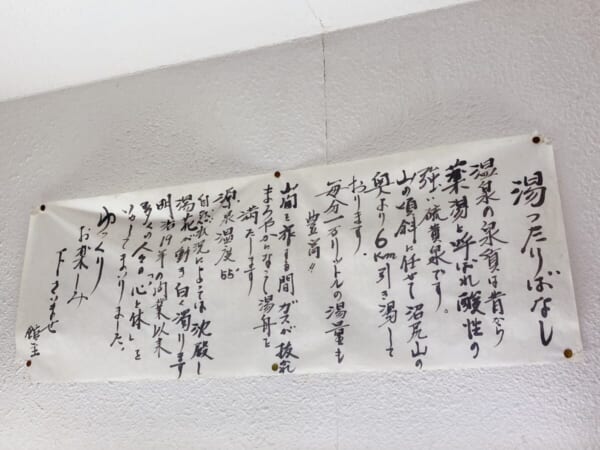 湯ったりばなし
温泉の泉質は昔から
薬湯と呼ばれ酸性の
強い硫黄泉です。
山の傾斜に任せて沼尻山の
奥より6km引き湯して
おります。
毎分一万リットルの湯量も
豊富!!
山間を旅する間ガスが抜れ
まろやかになって湯舟を
満たします
源泉温度68°
自然状況によっては沈殿し
湯花が動き白く濁ります
明治19年の開業以来
多くの人々の「心と体」を
いやしてまいりました。
ゆっくり
お楽しみ
下さいませ
館主